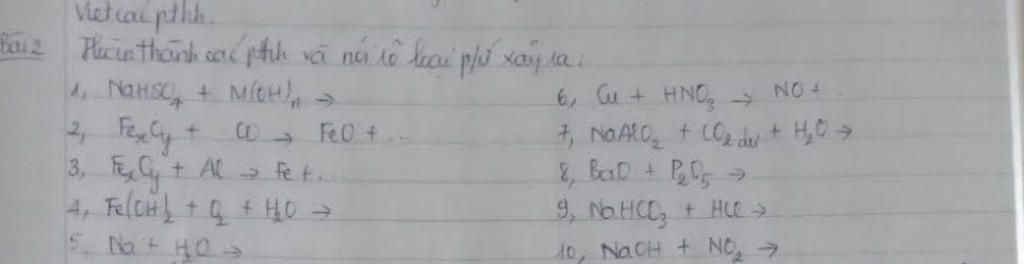 Viết các pthh.
Bài 2 Hoàn thành các pthh và nói rõ loại p/ứ xảy ra:
1, NaHSO4 + M(OH)n →
2, FexOy + CO → FeO + ...
3, FexOy + Al → Fe + ...
4, Fe(OH)2 + O2 + H2O →
5, Na + H2O →
6, Cu + HNO3 → NO + .
7, NaAlO2 + CO2 dư + H2O →
8, BaO + P2O5 →
9, NaHCO3 + HCl →
10, NaOH + NO2 →